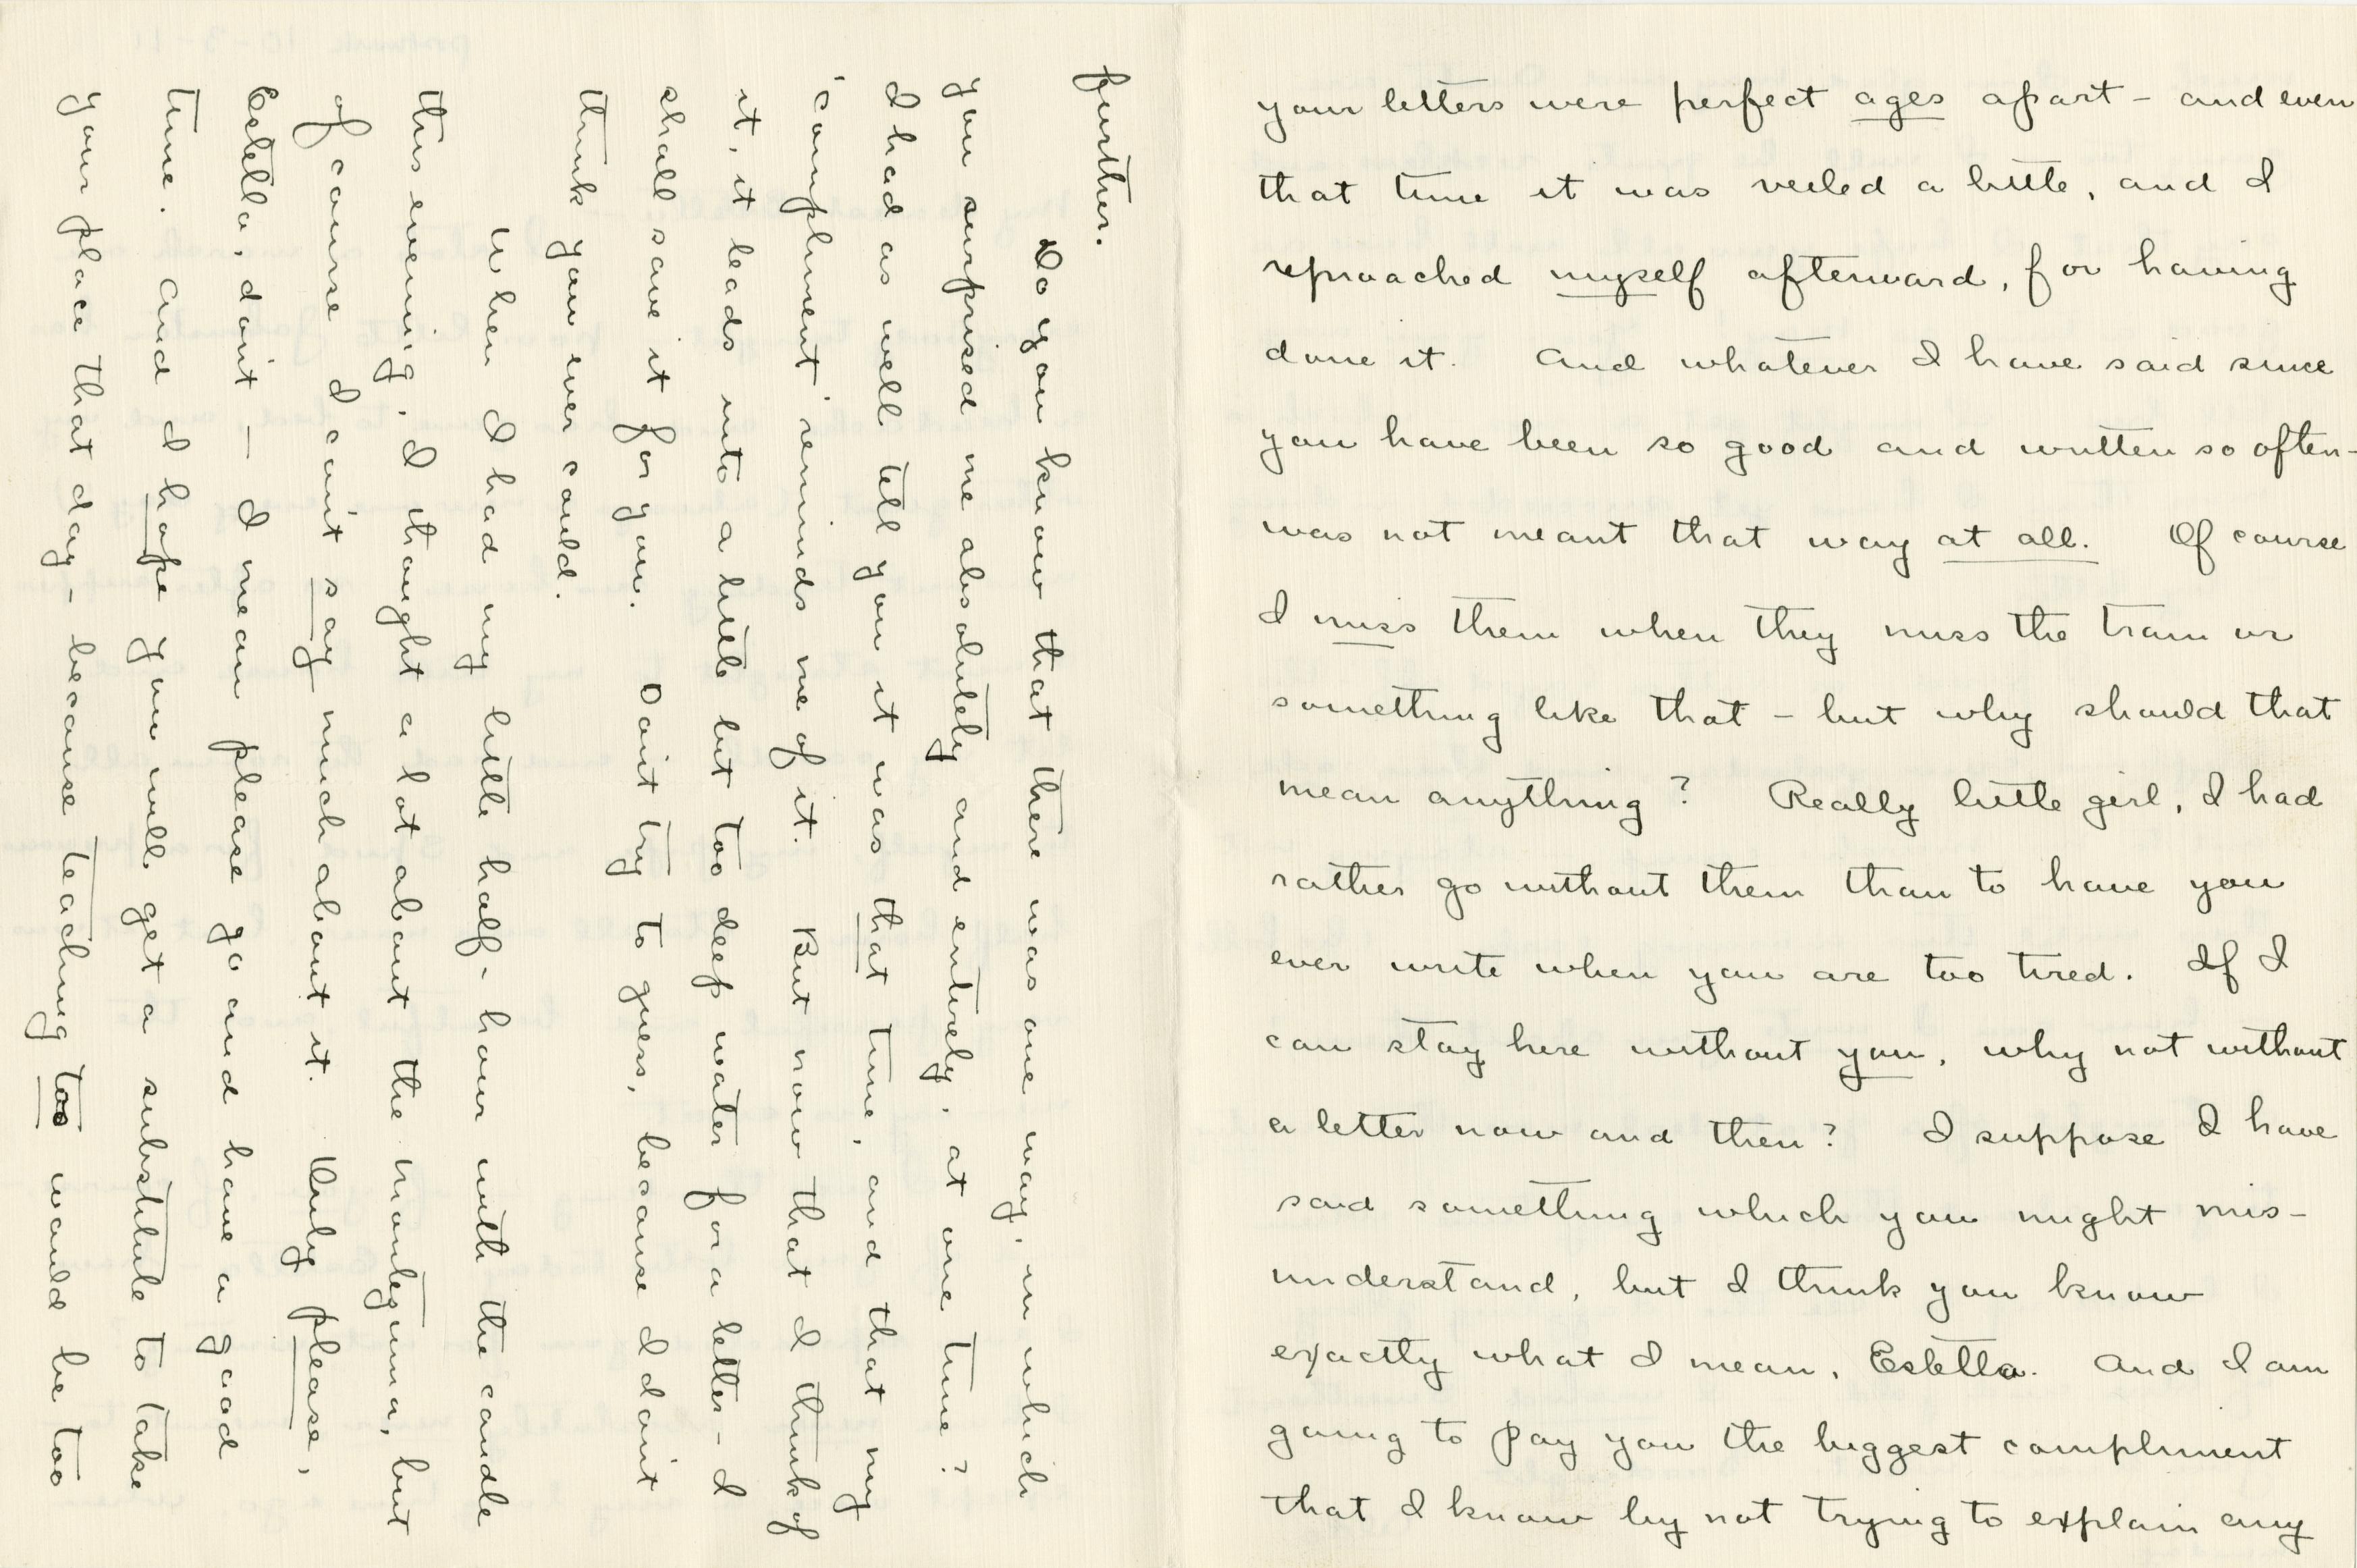 your letters were perfect ages apart - and even
that time it was veiled a little, and I
reproached myself afterward, for having
done it. And whatever I have said since
you have been so good and written so often -
was not meant that way at all. Of course
I miss them when they miss the train or
something like that - but why should that
mean anything? Really little girl, I had
rather go without them than to have you
ever write when you are too tired. If I
can stay here without you, why not without
a letter now and then? I suppose I have
said something which you might mis-
understand, but I think you know
exactly what I mean, Estella. And I am
going to pay you the biggest compliment
that I know by not trying to explain any
further.
Do you know that there was one way, in which
you surprised me absolutely and entirely, at one time?
I had as well tell you it was that time, and that my
'compliment' reminds me of it. But now that I think of
it, it leads into a little but too deep water for a letter - I
shall save it for you. Don't try to guess, because I don't
think you ever could.
When I had my little half-hour with the candle
this evening, I thought a lot about the Montezuma, but
of course I can't say much about it. Only please,
Estella, don't — I mean please go and have a good
time. And I hope you will get a substitute to take
your place that day - because teaching too would be too